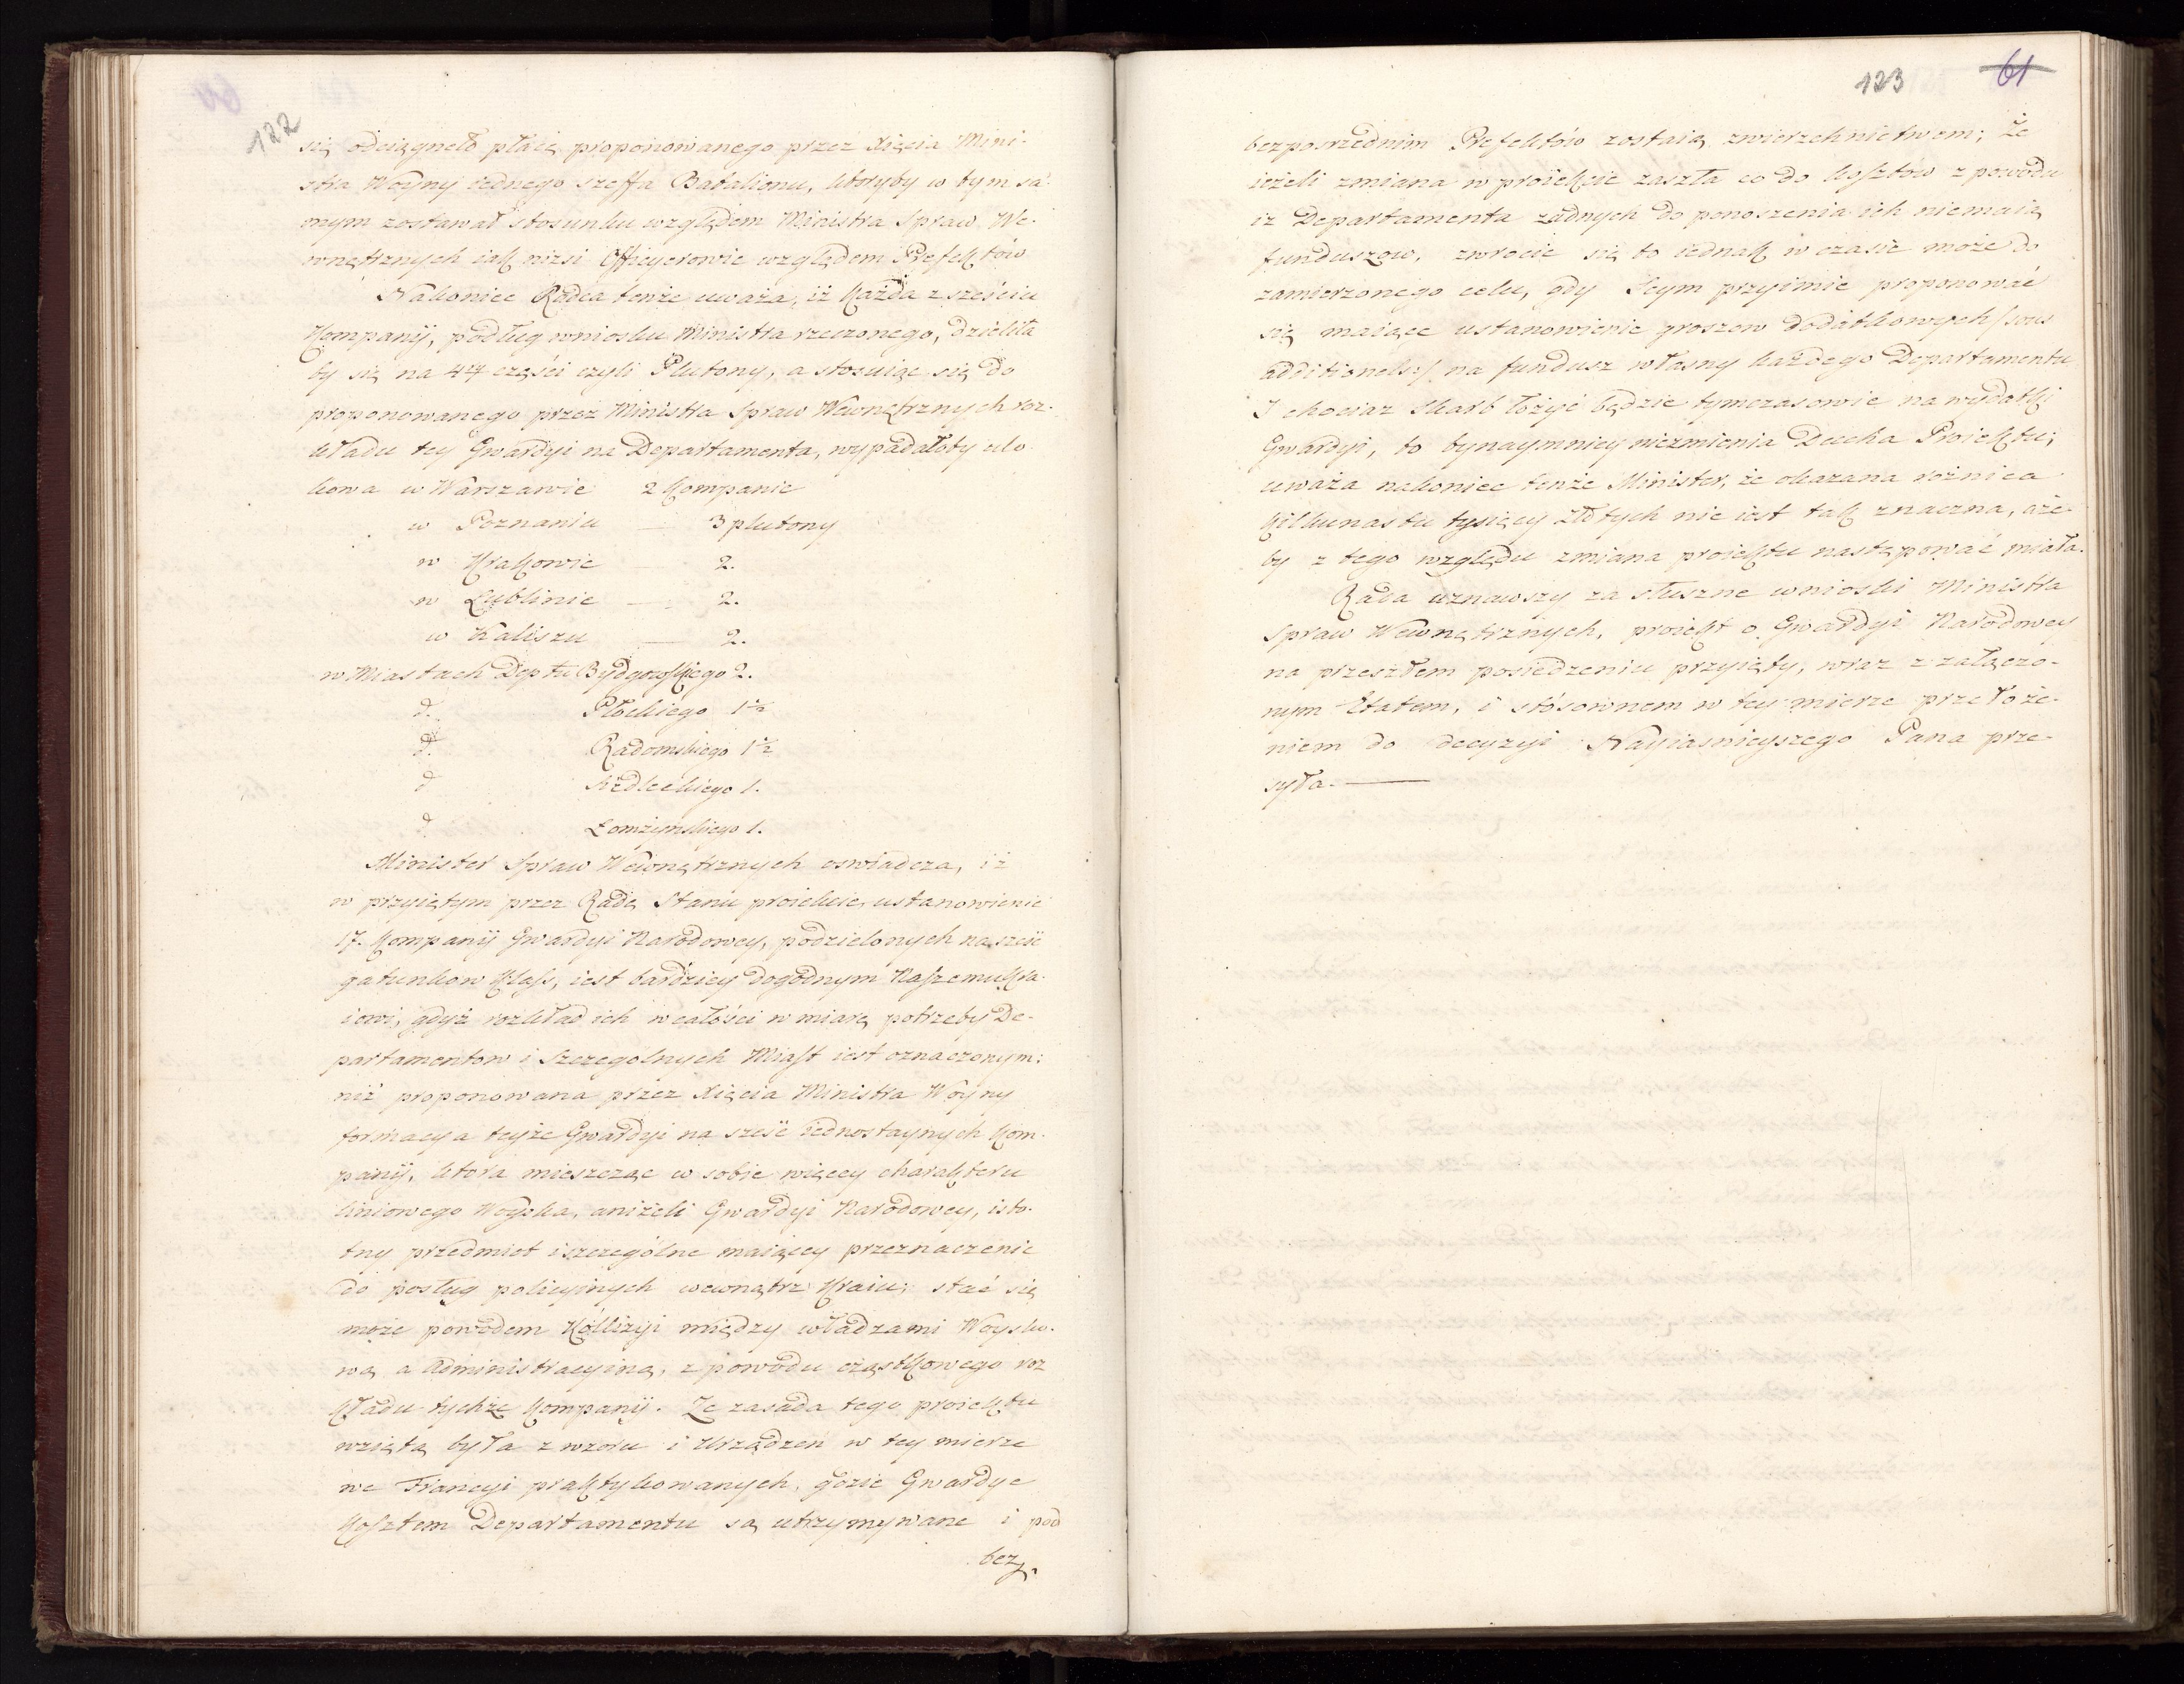 122
się odciągneło płacę proponowanego przez Xięcia Mini-
stra Woyny iednego szeffa Batalionu, któryby w tym sa-
mym zostawał stosunku względem Ministra Spraw We-
wnętrznych iak niżsi Officyerowie względem Prefektów
Nakoniec Radca tenże uważa, iż każda z sześciu
Kompanij, podług wniosku Ministra rzeczonego, dzieliła
by się na 44 części czyli Plutony, a stosuiąc się do
proponowanego przez Ministra Spraw Wewnętrznych roz-
kładu tey Gwardyi na Departamenta, wypadałoby ulo
kowa w Warszawie 2 Kompanie
w Poznaniu — 3 plutony
w Krakowie — 2.
w Lublinie — 2.
w Kaliszu — 2.
w Miastach Deptu Bydgoskiego 2.
d. Płockiego 1½
d. Radomskiego 1½
d Siedleckiego 1.
d. Łomżynskiego 1.
Minister Spraw Wewnętrznych oswiadcza, iż
w przyiętym przez Radę Stanu proiekcie ustanowienie
17. Kompanij Gwardyi Narodowey, podzielonych na sześć
gatunkow Klass, iest bardziey dogodnym Naszemu Kra-
iowi, gdyż rozkład ich w całości w miarę potrzeby De-
partamentow i Szczegolnych Miast iest oznaczonym;
niż proponowana przez Xięcia Ministra Woyny
formacya teyże Gwardyi na sześć iednostaynych Kom-
panij, ktora mieszcząc w sobie więcey charakteru
liniowego Woyska, aniżeli Gwardyi Narodowey, isto-
tny przedmiot i szczególne maiącey przeznaczenie
do posług policyinych wewnątrz Kraiu; stać się
może powodem Kóllizyi między władzami Woysko-
wą a Administracyiną, z powodu cząstkowego roz
kładu tychże Kompanij. Że zasada tego proiektu
wziętą była z wzoru i Urządzeń w tey mierze
we Francyi praktykowanych, gdzie Gwardye
Kosztem Departamentu są utrzymywane i pod
bez.
123 61
bezposrzednim Prefektów zostaią zwierzchnictwem; Że
ieżeli zmiana w proiekcie zaszła co do kosztów z powodu
iz Departamenta żadnych do ponoszenia ich niemaią
funduszow, zwrocić się to iednak w czasie może do
zamierzonego celu, gdy Seym przyimie proponować
się maiące ustanowienie groszow dodatkowych /: sous
additionels :/ na fundusz własny każdego Departamentu
I chociaz Skarb łożyć będzie tymczasowie na wydatki
Gwardyi, to bynaymniey niezmienia Ducha Proiektu;
uważa nakoniec tenże Minister, że okazana rożnica
kilkunastu tysięcy Złotych nie iest tak znaczna, aże-
by z tego względu zmiana proiektu następować miała.
Rada uznawszy za słuszne wnioski Ministra
Spraw Wewnętrznych, proiekt o Gwardyi Narodowey
na przeszłem posiedzeniu przyięty, wraz z załączo-
nym Etatem, i stósownem w tey mierze przełoże-
niem do decyzyi Nayiasnieyszego Pana prze-
syła. —